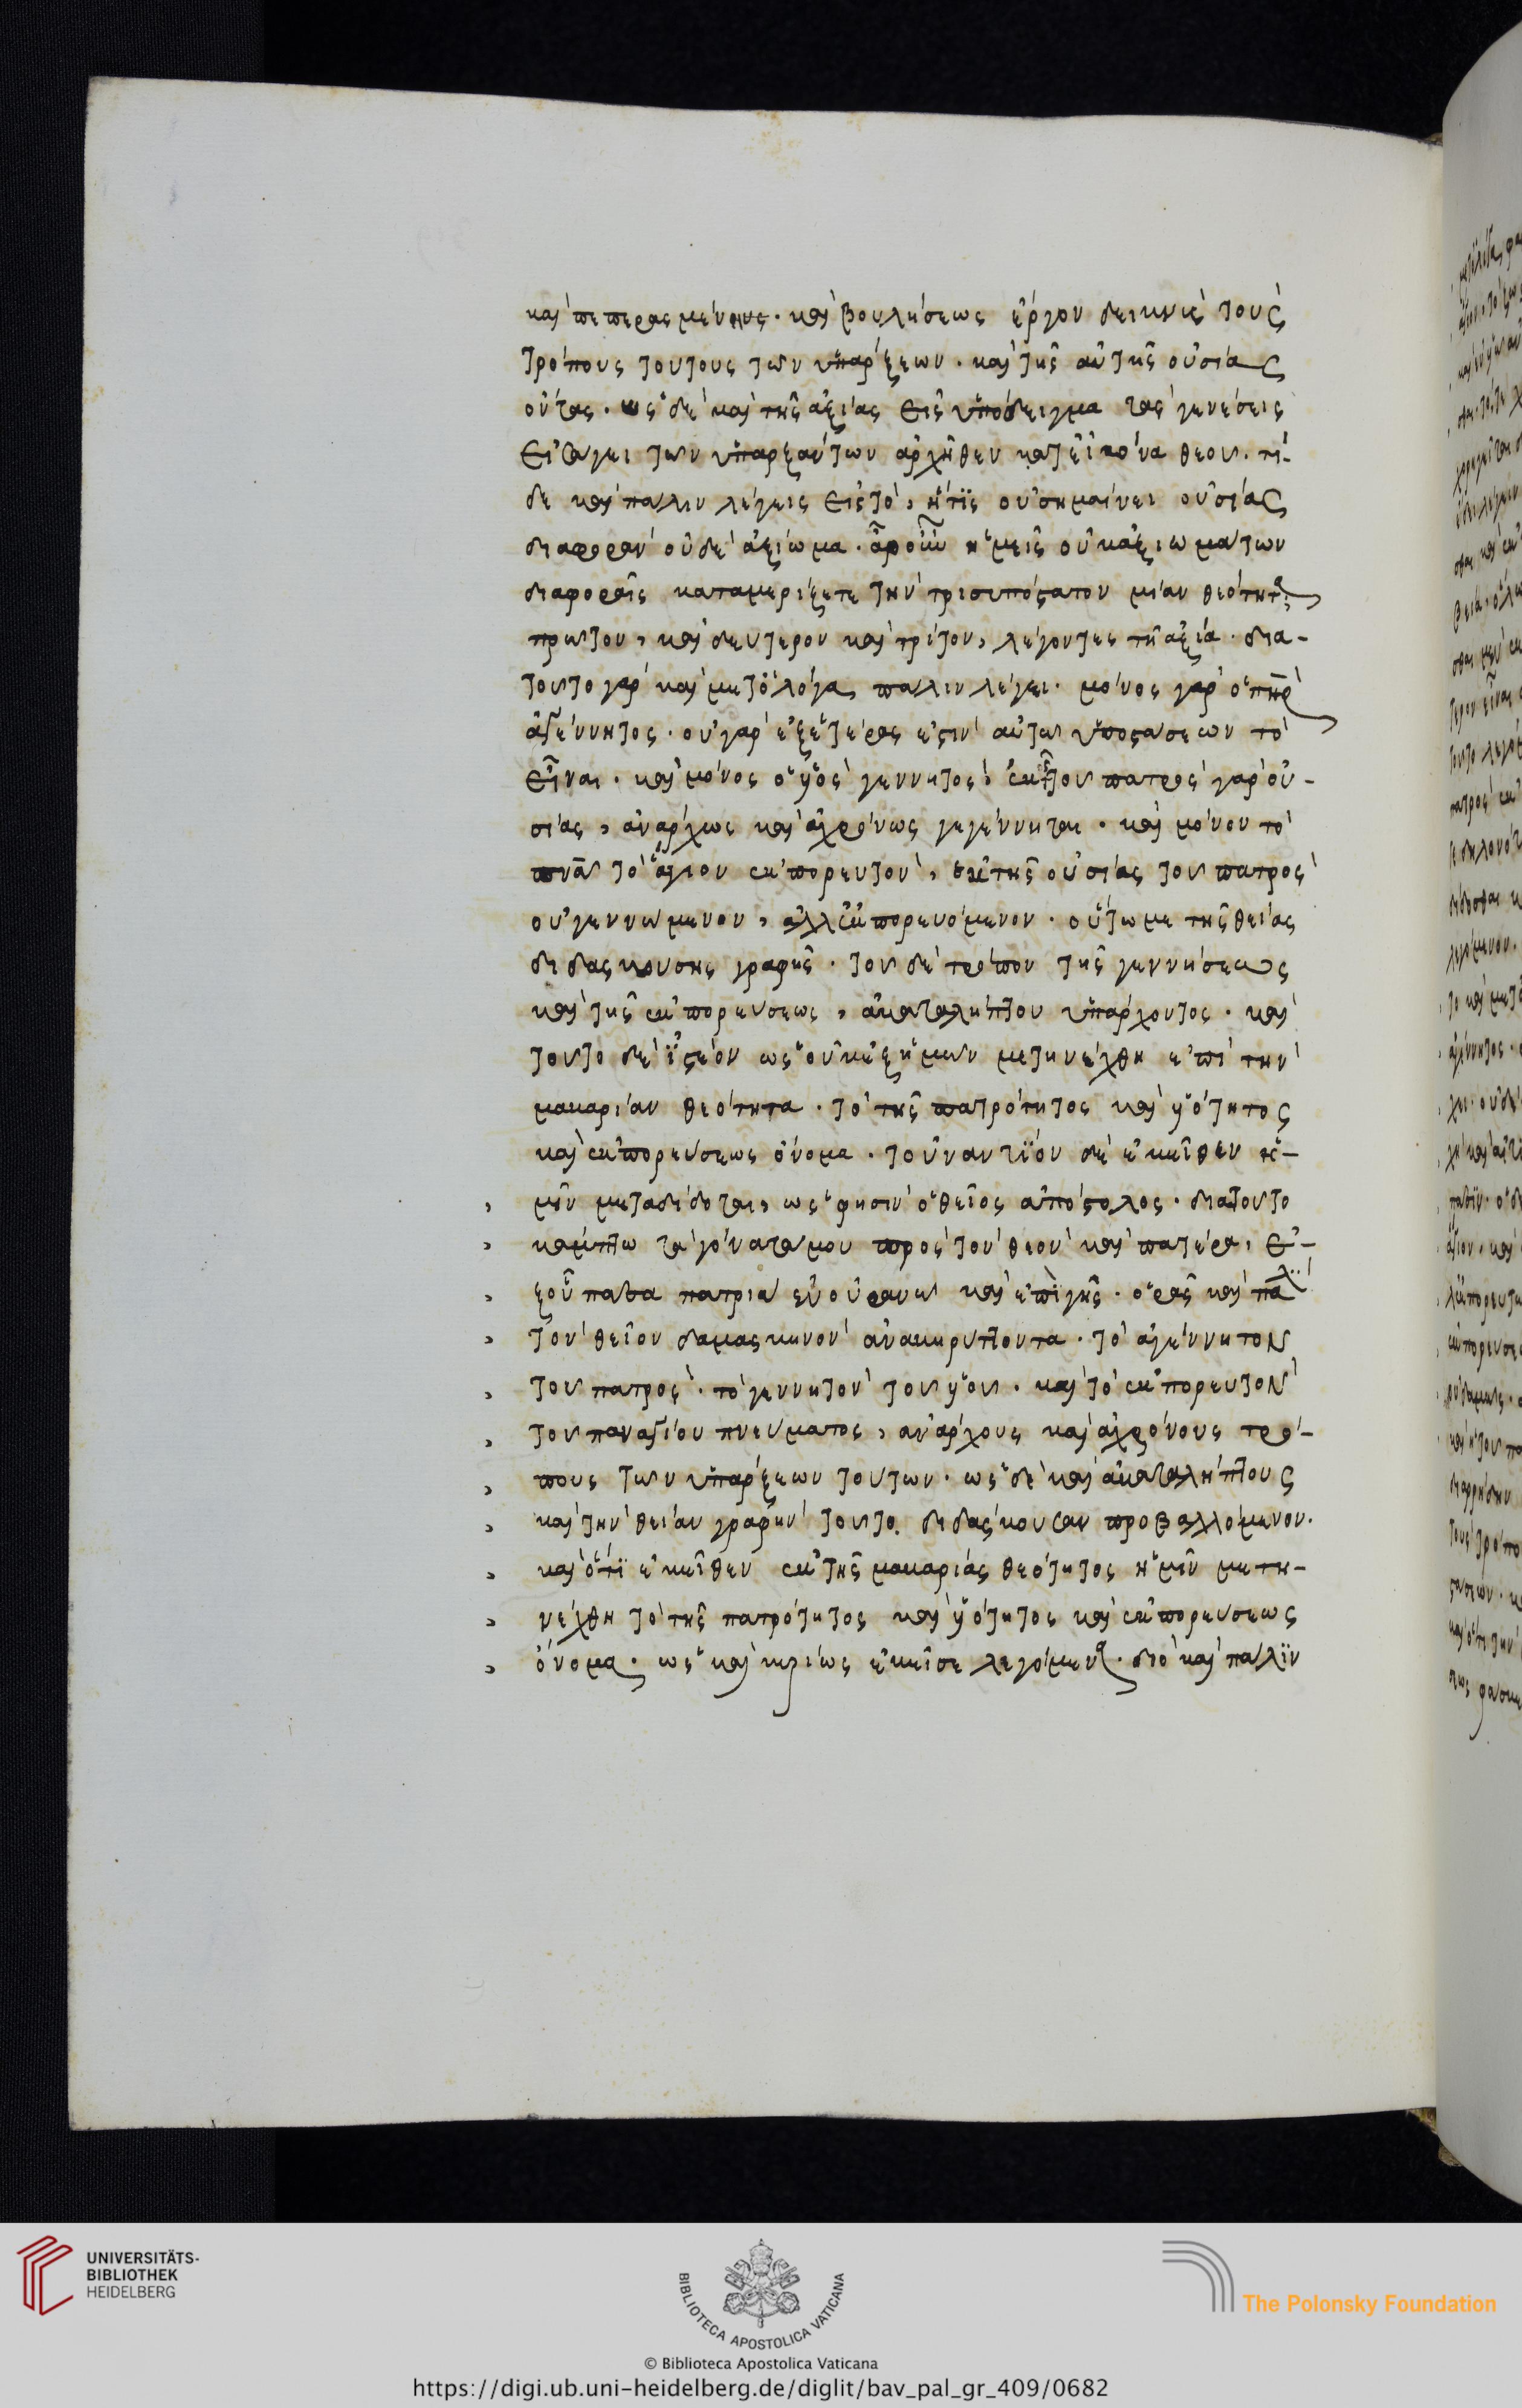 καὶ πεπερασμένους. καὶ βουλήσεως ἔργον δεικνὺς τοὺς
τρόπους τούτους τῶν ὑπάρξεων. καὶ τῆς αὐτῆς οὐσίας
ὄντας. ὡς δὲ καὶ τῆς ἀξίας εἰς ὑπόδειγμα τὰς γενέσεις
εἰσάγει τῶν ὑπαρξάντων ἀρχῆθεν κατεἰκόνα θεοῦ. τί
δε καὶ πάλιν λέγεις εἰς τὸ, ἥτις οὐ σημαίνει οὐσίας
διαφορὰν οὐδὲ ἀξίωμα. ἆρ οὖν ἡμεῖς οὐκ ἀξιωμάτων
διαφοραῖς καταμερίζετε τὴν τρισυπόστατον μίαν θεότητα;
πρῶτον, καὶ δεύτερον καὶ τρίτον, λέγοντες τῇ ἀξίᾳ. δια-
τοῦτο γὰρ καὶ μετ ὀλίγα πάλιν λέγει. μόνος γὰρ ὁ πηρ
ἀγέννητος. οὐ γὰρ ἐξ ἑτέρας ἐστὶν αὐτῷ ὑποστάσεων τὸ
εἶναι. καὶ μόνος ὁ υἱὸς γεννητός, ἐκ τοῦ πατρὸς γὰρ οὐ-
σίας, ἀνάρχως καὶ ἀχρόνως γεγέννηται. καὶ μόνον τὸ
πνα τὸ ἅγιον ἐκπορευτὸν, ἐκ τῆς οὐσίας τοῦ πατρὸς
οὐ γεννώμενον, ἀλλ ἐκπορευόμενον. οὕτω με τῆς θείας
διδασκούσης γραφῆς. τοῦ δὲ τρόπου τῆς γεννήσεως
καὶ τῆς ἐκπορεύσεως, ἀκαταλήπτου ὑπάρχοντος. καὶ
τοῦτο δὲ ἰστέον ὡς οὐκ ἐξ ἡμῶν μετηνέχθη ἐπὶ τὴν
μακαρίαν θεότητα. τὸ τῆς πατρότητος καὶ υἱότητος
καὶ ἐκπορεύσεως ὄνομα. τοὐναντίον δὲ ἐκεῖθεν ἡ-
μῖν μεταδίδοται, ὡς φησὶν ὁ θεῖος ἀπόστολος. διατοῦτο
κάμπτω τὰ γόνατά μου πρὸς τὸν θεὸν καὶ πατέρα, ἐ-
ξ οὗ πᾶσα πατριὰ ἐν οὐρανῷ καὶ ἐπὶ γῆς. ὁρᾷς καὶ παλι
τὸν θεῖον δαμασκηνὸν ἀνακηρύττοντα. τὸ ἀγέννητον
τοῦ πατρὸς. τὸ γεννητὸν τοῦ υἱοῦ. καὶ τὸ ἐκπορευτὸν
τοῦ παναγίου πνεύματος, ἀνάρχους καὶ ἀχρόνους τρό-
πους τῶν ὑπάρξεων τούτων. ὡς δὲ καὶ ἀκαταλήπτους
καὶ τὴν θείαν γραφὴν τοῦτο διδάσκουσαν προβαλλόμενον.
καὶ ὅτι ἐκεῖθεν ἐκ τῆς μακαρίας θεότητος ἡμῖν μετη-
νέχθη τὸ τῆς πατρότητος καὶ υἱότητος καὶ ἐκπορεύσεως
ὄνομα. ὡς καὶ κυρίως ἐκεῖσε λεγόμενα. διὸ καὶ πάλιν
UNIVERSITÄTS-
BIBLIOTHEK
HEIDELBERG
BIBLIOTECA APOSTOLICA VATICANA
The Polonsky Foundation
© Biblioteca Apostolica Vaticana
https://digi.ub.uni-heidelberg.de/diglit/bav_pal_gr_409/0682